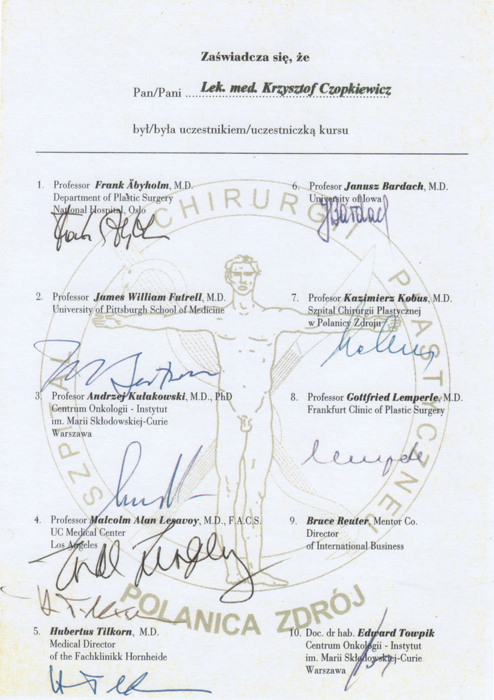 Zaświadcza się, że
Pan/Pani Lek. med. Krzysztof Czopkiewicz
był/była uczestnikiem/uczestniczką kursu
1. Professor Frank Åbyholm, M.D.
Department of Plastic Surgery
National Hospital, Oslo
2. Professor James William Futrell, M.D.
University of Pittsburgh School of Medicine
3. Profesor Andrzej Kułakowski, M.D., PhD
Centrum Onkologii - Instytut
im. Marii Skłodowskiej-Curie
Warszawa
4. Professor Malcolm Alan Lesavoy, M.D., F.A.C.S.
UC Medical Center
Los Angeles
5. Hubertus Tilkorn, M.D.
Medical Director
of the Fachklinikk Hornheide
H Tilkorn
6. Profesor Janusz Bardach, M.D.
University of Iowa
JBardach
7. Profesor Kazimierz Kobus, M.D.
Szpital Chirurgii Plastycznej
w Polanicy Zdroju
8. Profesor Gottfried Lemperle, M.D.
Frankfurt Clinic of Plastic Surgery
9. Bruce Reuter, Mentor Co.
Director
of International Business
10. Doc. dr hab. Edward Towpik
Centrum Onkologii - Instytut
im. Marii Skłodowskiej-Curie
Warszawa
SZPITAL CHIRURGII PLASTYCZNEJ
POLANICA ZDRÓJ